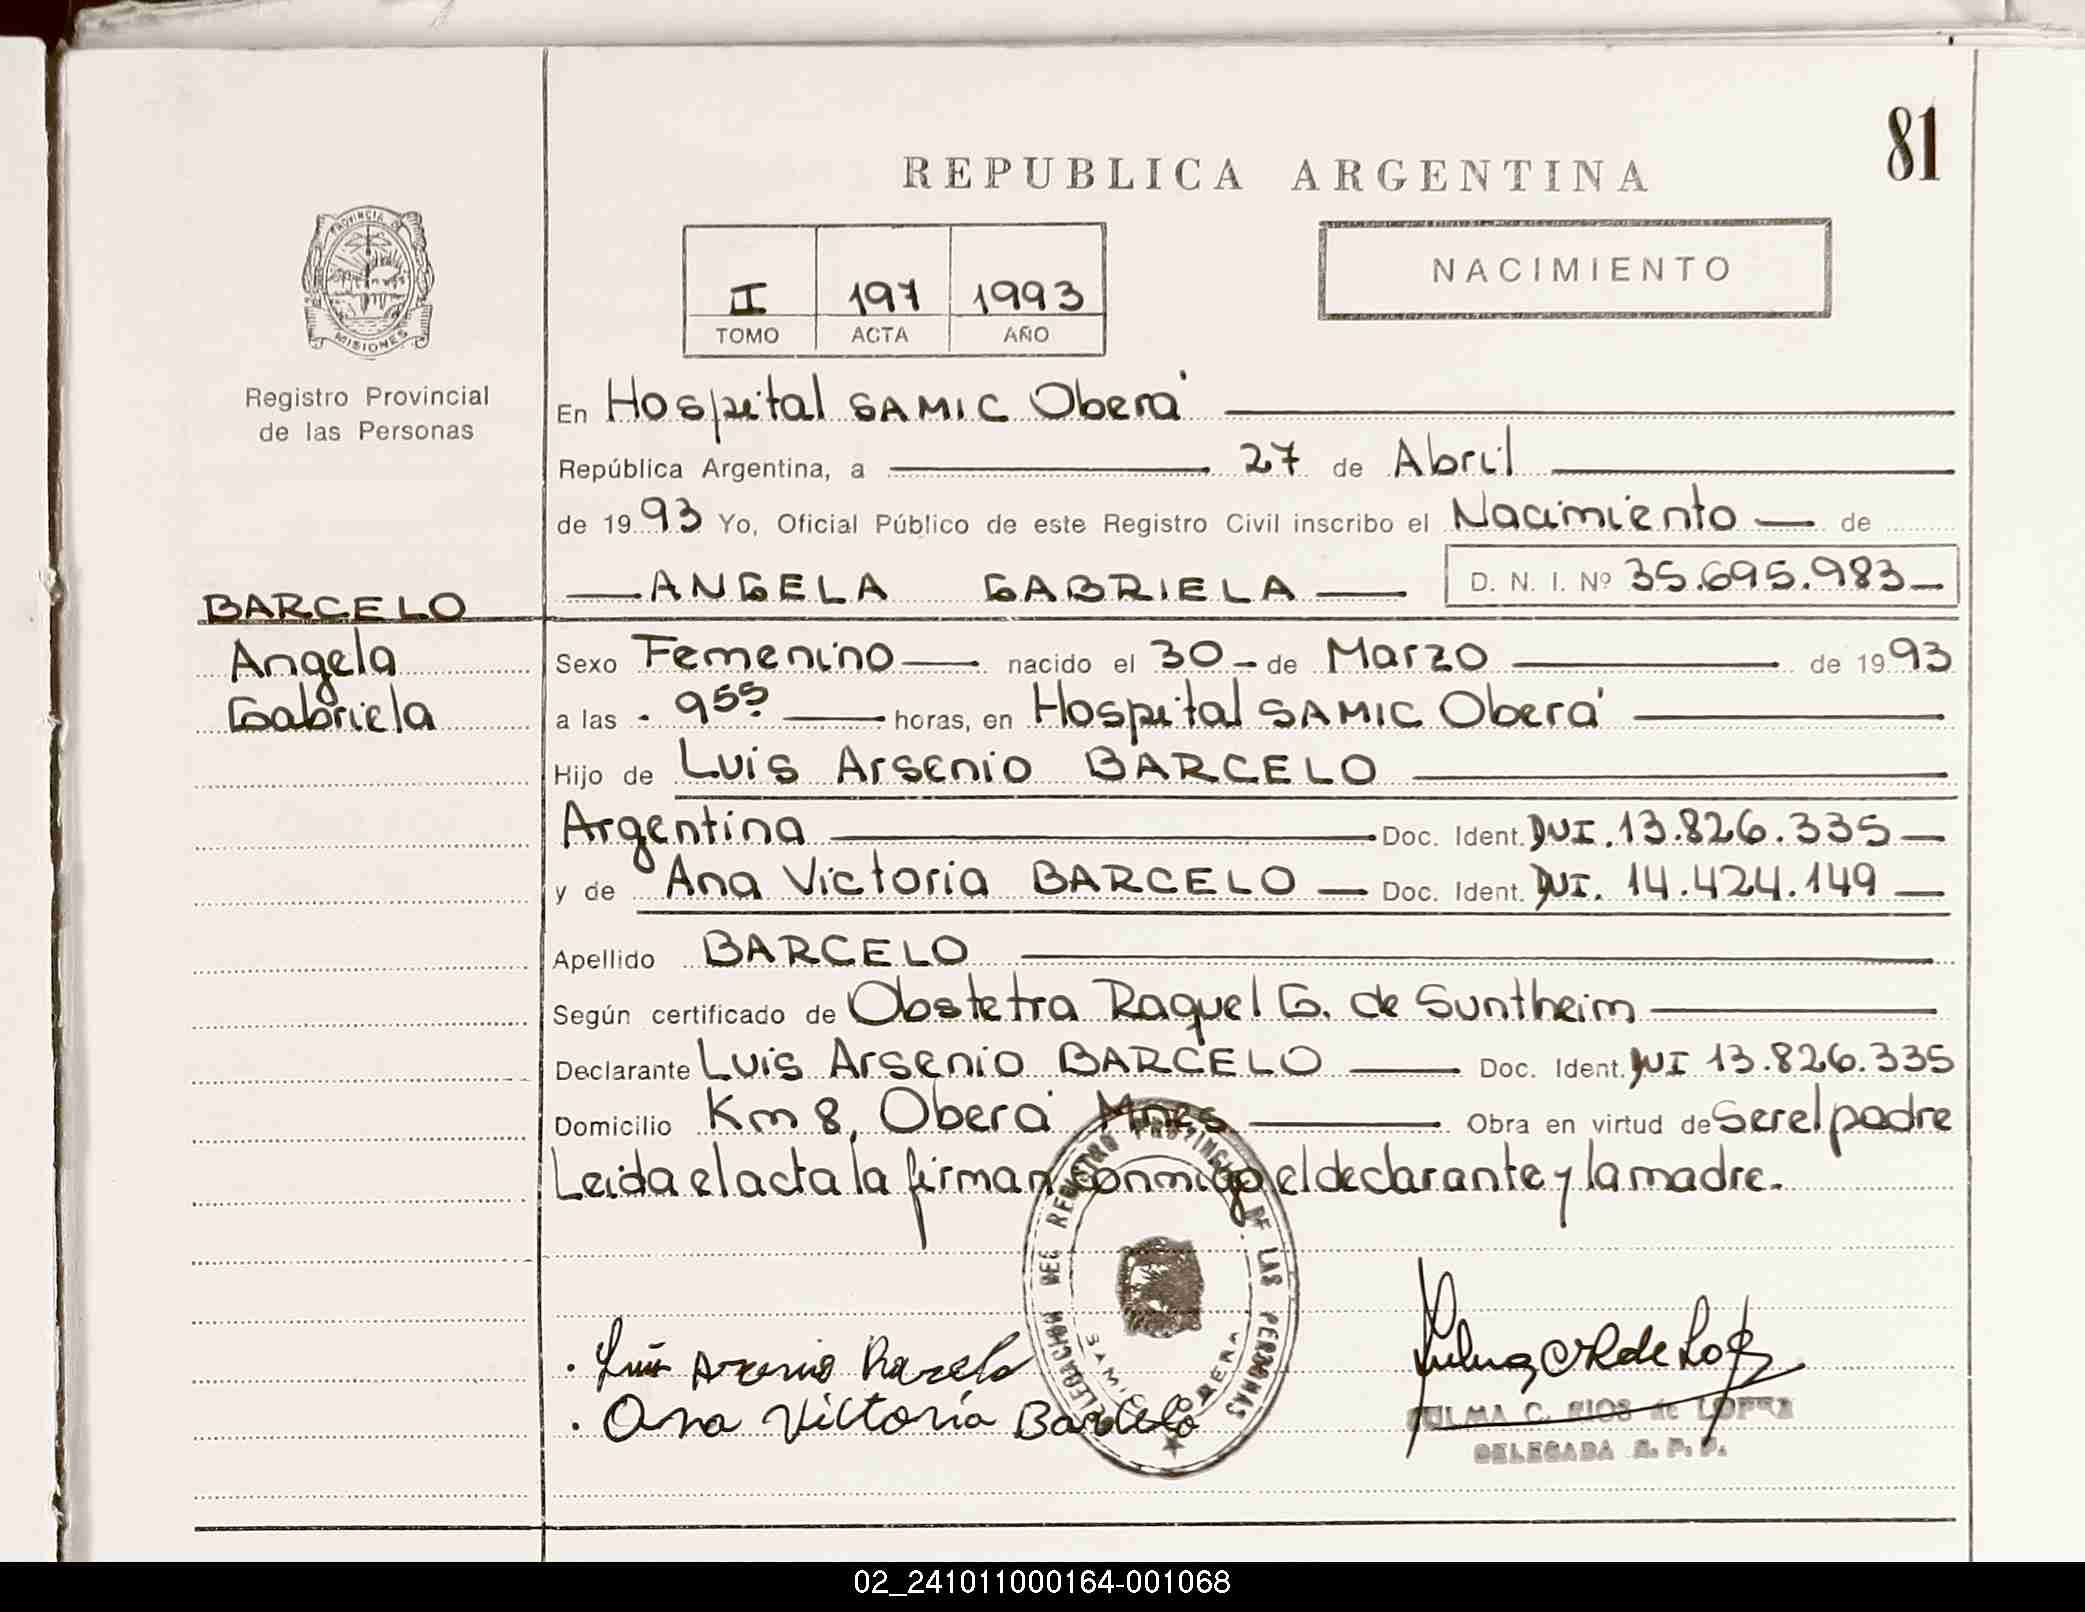 81
REPUBLICA ARGENTINA
PROVINCIA DE
MISIONES
Registro Provincial
de las Personas
I 197 1993
TOMO ACTA AÑO
NACIMIENTO
En Hospital SAMIC Oberá
República Argentina, a 27 de Abril
de 1993 Yo, Oficial Público de este Registro Civil inscribo el Nacimiento de
ANGELA GABRIELA D. N. I. Nº 35.695.983
BARCELO
Angela
Gabriela
Sexo Femenino nacido el 30 de Marzo de 1993
a las 9⁵⁵ horas, en Hospital SAMIC Oberá
Hijo de Luis Arsenio BARCELO
Argentina Doc. Ident. DUI. 13.826.335
y de Ana Victoria BARCELO Doc. Ident. DUI. 14.424.149
Apellido BARCELO
Según certificado de Obstetra Raquel G. de Suntheim
Declarante Luis Arsenio BARCELO Doc. Ident. DUI 13.826.335
Domicilio Km 8, Oberá Mnes Obra en virtud de Ser el padre
Leida el acta la firman conmigo el declarante y la madre.
DELEGACION DEL REGISTRO PROVINCIAL DE LAS PERSONAS
SAMIC OBERA
Luis Arsenio Barcelo
Ana Victoria Barcelo
C. RIOS de LOPEZ
DELEGADA R. P. P.
02_241011000164-001068